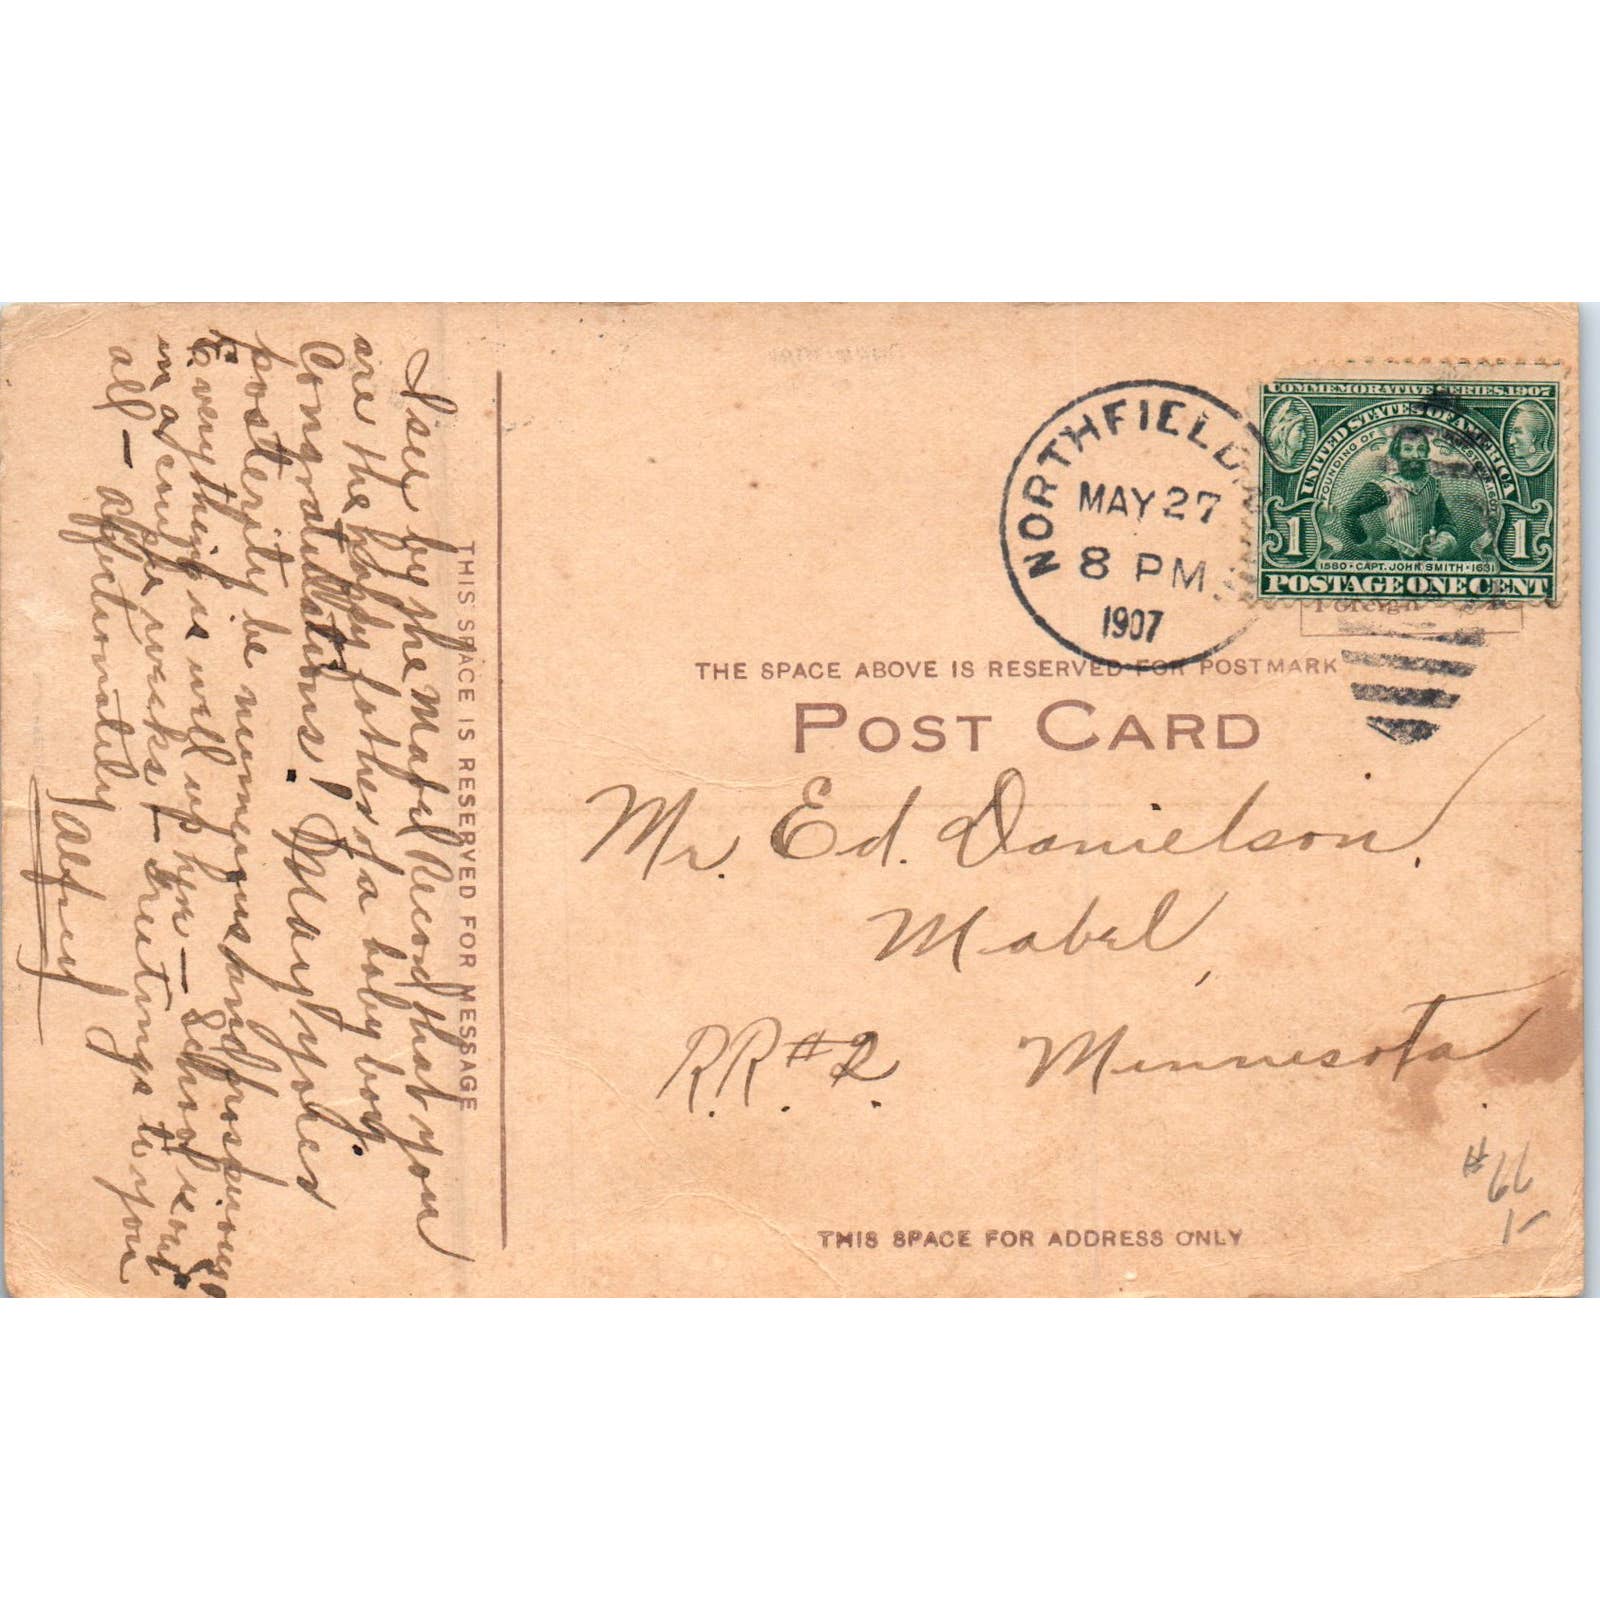 I see by the Mabel Record that you
are the happy father of a baby boy.
Congratulations! May your
posterity be numerous and prosperous.
Everything is well up here — School is out
in a couple weeks — Greetings to you
all — Affectionately
THIS SPACE IS RESERVED FOR MESSAGE
NORTHFIELD
MAY 27
8 PM
1907
COMMEMORATIVE SERIES 1907
UNITED STATES OF AMERICA
FOUNDING OF JAMESTOWN 1607
1 1
1580 · CAPT. JOHN SMITH · 1631
POSTAGE ONE CENT
Foreign
THE SPACE ABOVE IS RESERVED FOR POSTMARK
POST CARD
Mr. Ed. Danielson,
Mabel,
R.R. #2. Minnesota
#66
THIS SPACE FOR ADDRESS ONLY